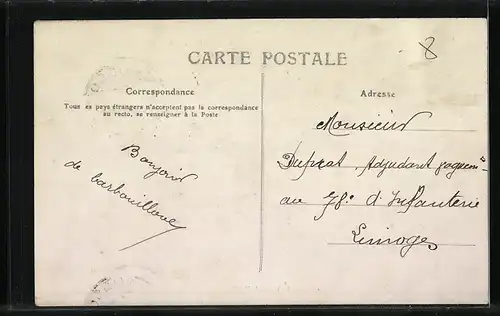 8
CARTE POSTALE
Correspondance
Tous es pays étrangers n'acceptent pas la correspondance
au recto, se renseigner à la Poste
Bonjour
de barbouilloue
Adresse
Monsieur
Duprat Adjudant
au 78e d'Infanterie
Limoges